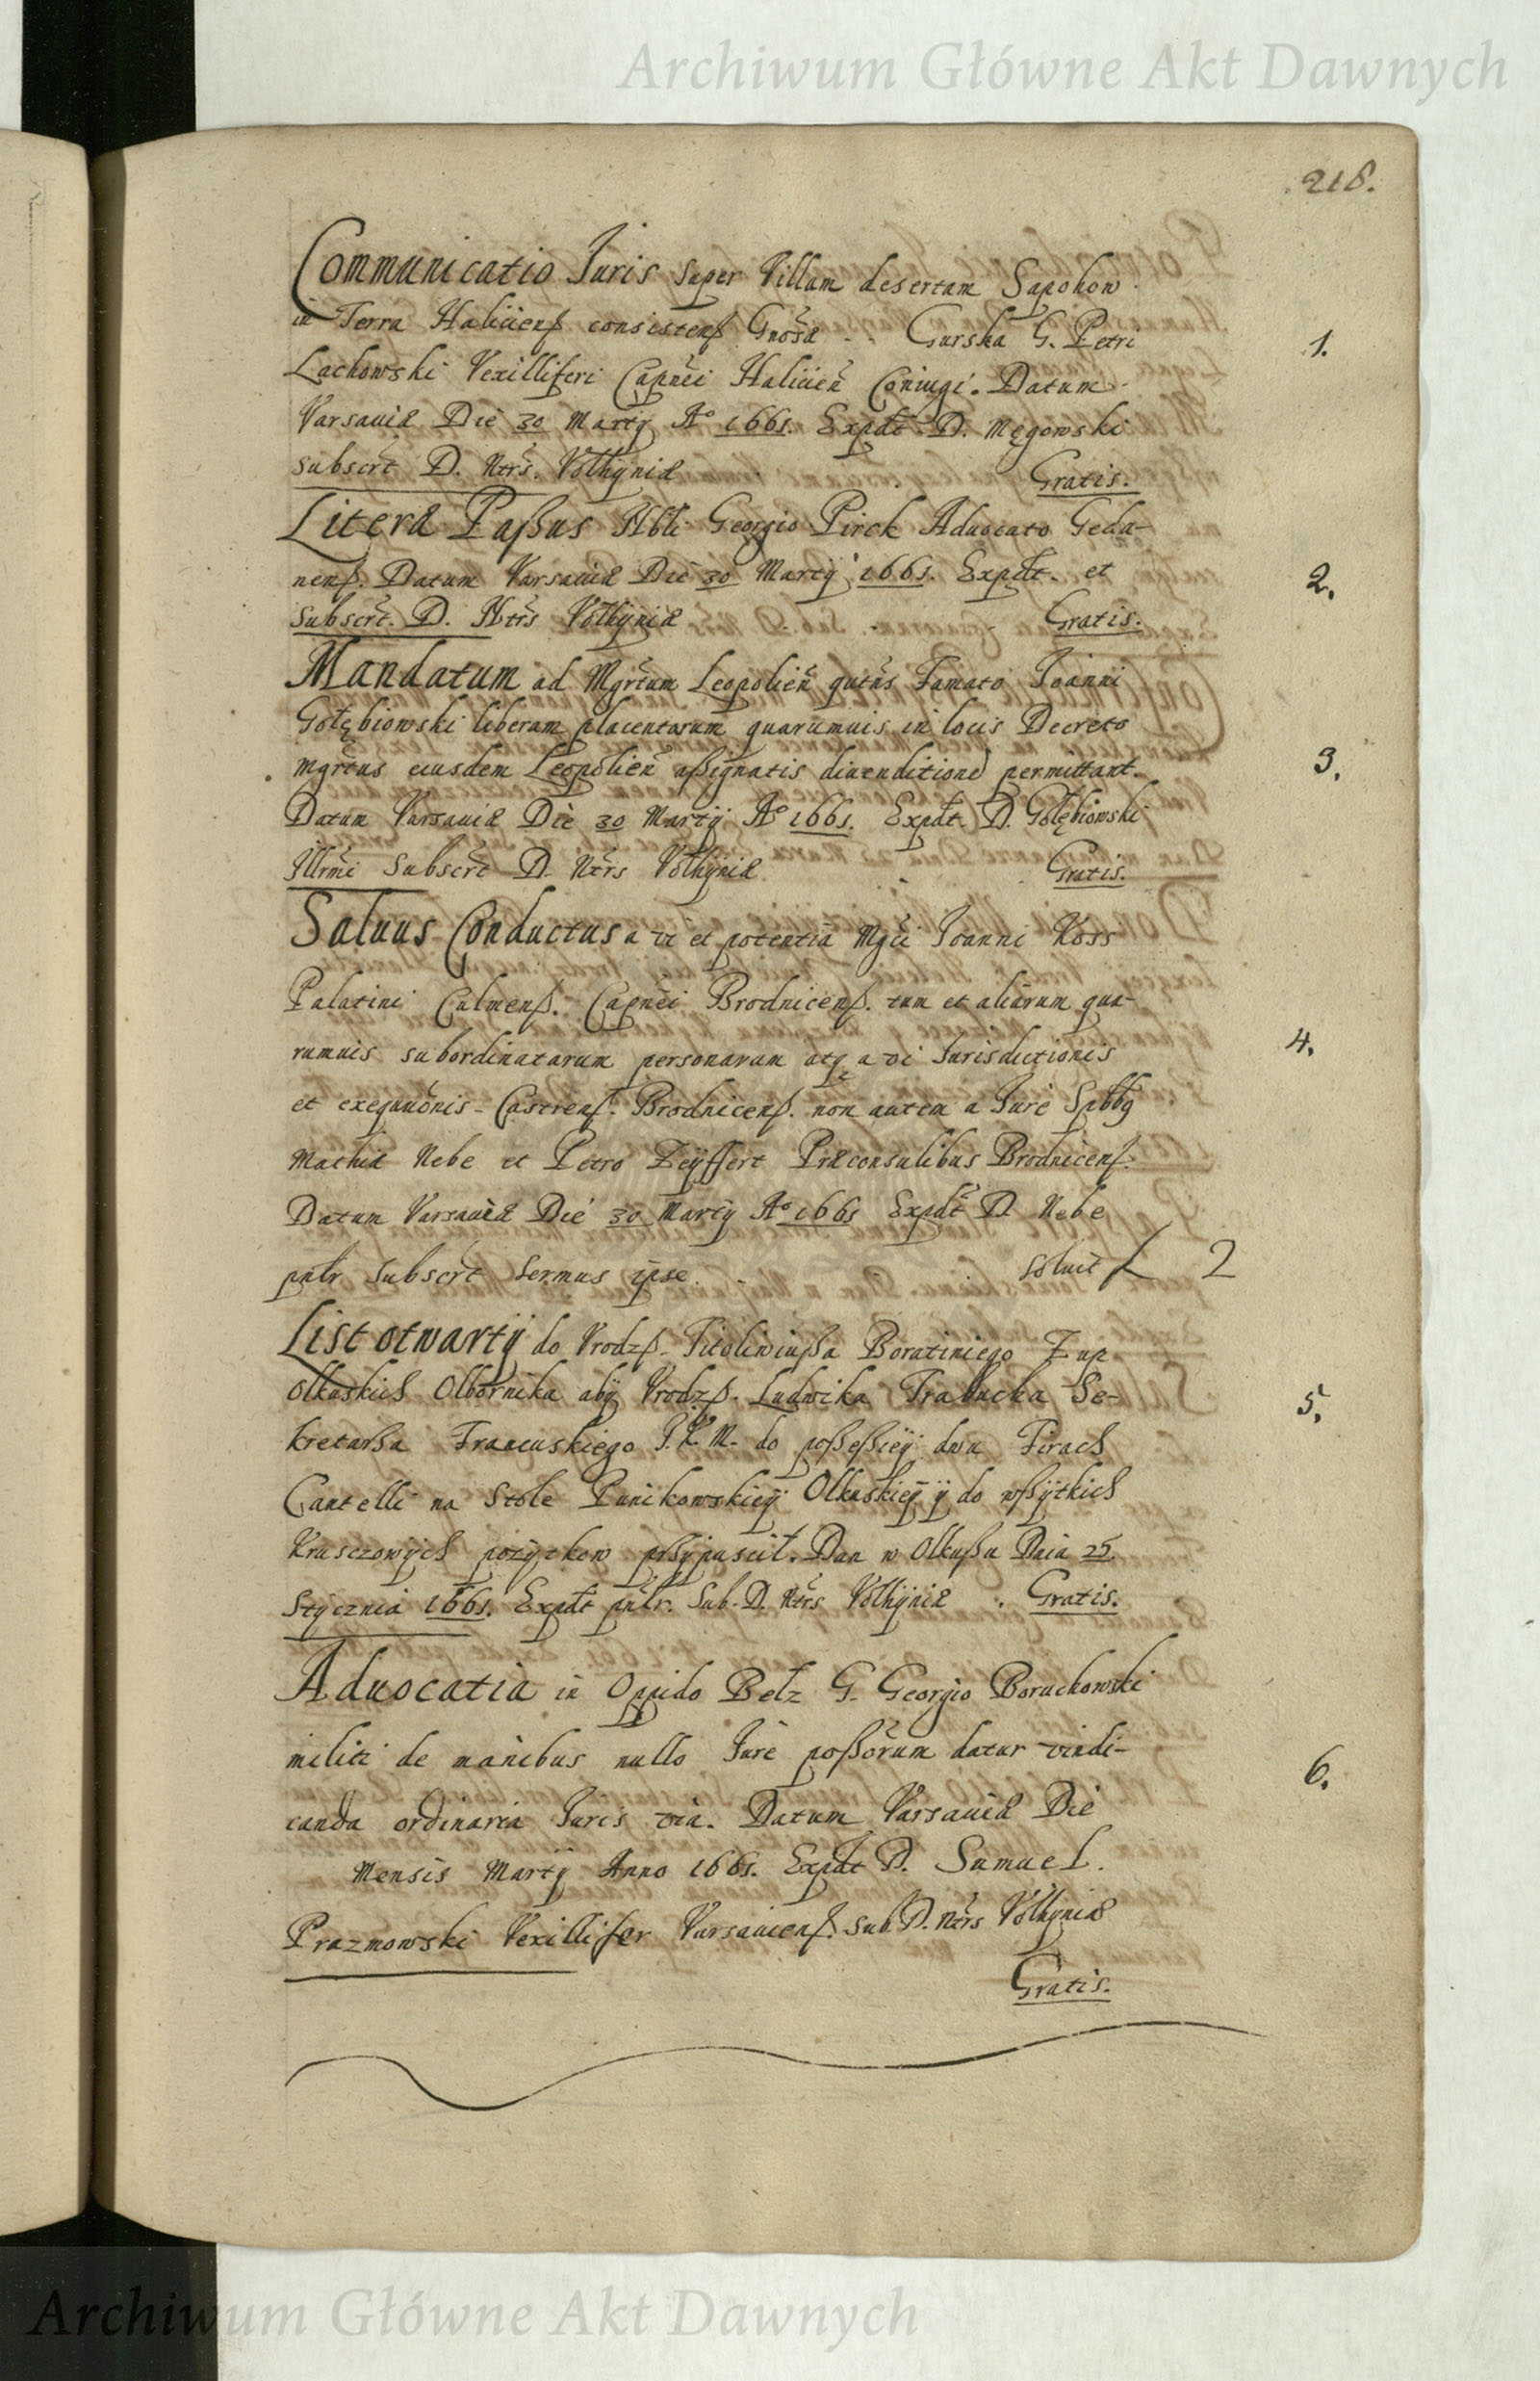 Archiwum Główne Akt Dawnych
218.
Communicatio Juris super Villam desertam Sapohow
in Terra Haliciens̃ consistens̃ Gnosæ - - Gurska G. Petri
1.
Lachowski Vexilliferi Capnei Halicien̄ Coniugi. Datum
Varsaviæ Die 30 Martij Aº 1661. Expdt D. Męgowski
subscrt D. Ntrs. Volhyniæ Gratis.
Literæ Paßus Nbli Georgio Pirck Advocato Geda-
nens̃. Datum Varsaviæ Die 30 Martij 1661. Expdt. et
2.
subscrt. D. Ntrs Volhyniæ Gratis.
Mandatum ad Mgrtum Leopolien̄ qutns Famato Joanni
Gołębiowski liberam placentarum quarumuis in locis Decreto
Mgrtus eiusdem Leopolien̄ aßignatis diuenditione permittant.
3.
Datum Varsaviæ Die 30 Martij Aº 1661. Expdt. D. Gołębiowski
Illrmi Subscrt D. Ntrs Volhyniæ Gratis.
Saluus Conductus a vi et potentia Mgci Joanni Koss
Palatini Culmens̃. Capnei Brodnicens̃. tum et aliarum qua-
rumuis subordinatarum personarum atq a vi Jurisdictionis
4.
et exequuonis Castrens̃. Brodnicens̃. non autem a Jure Spbbg
Mathiæ Nebe et Petro Zeÿffert Præconsulibus Brodnicens̃.
Datum Varsaviæ Die 30 Martij Aº 1661 Expdt D. Nebe
pntr subscrt Sermus ipse. soluit f 2
List otwartÿ do Vrodzß. Titoliwiußa Boratiniego Zup
Olkuskich Olbornika abÿ Vrodzß. Ludwika Trabucka Se-
5.
kretarßa Francuskiego J.K.M. do poßeßieÿ dwu Firach
Cantelli na Stole Punikowskieÿ Olkuskieÿ ÿ do wßÿtkich
Krusczowÿch pożÿtkow przÿpuscił. Dan w Olkußu Dnia 25
Stÿcznia 1661. Expdt pntr. Sub. D. Ntrs Volhyniæ Gratis.
Aduocatia in Oppido Bełz G. Georgio Boruchowski
militi de manibus nullo Jure poßorum datur vindi-
6.
canda ordinaria Juris via. Datum Varsaviæ Die
Mensis Martij Anno 1661. Expdt D. Samuel.
Prazmowski Vexillifer Varsauiens̃. Sub. D. Ntrs Volhyniæ
Gratis.
Archiwum Główne Akt Dawnych